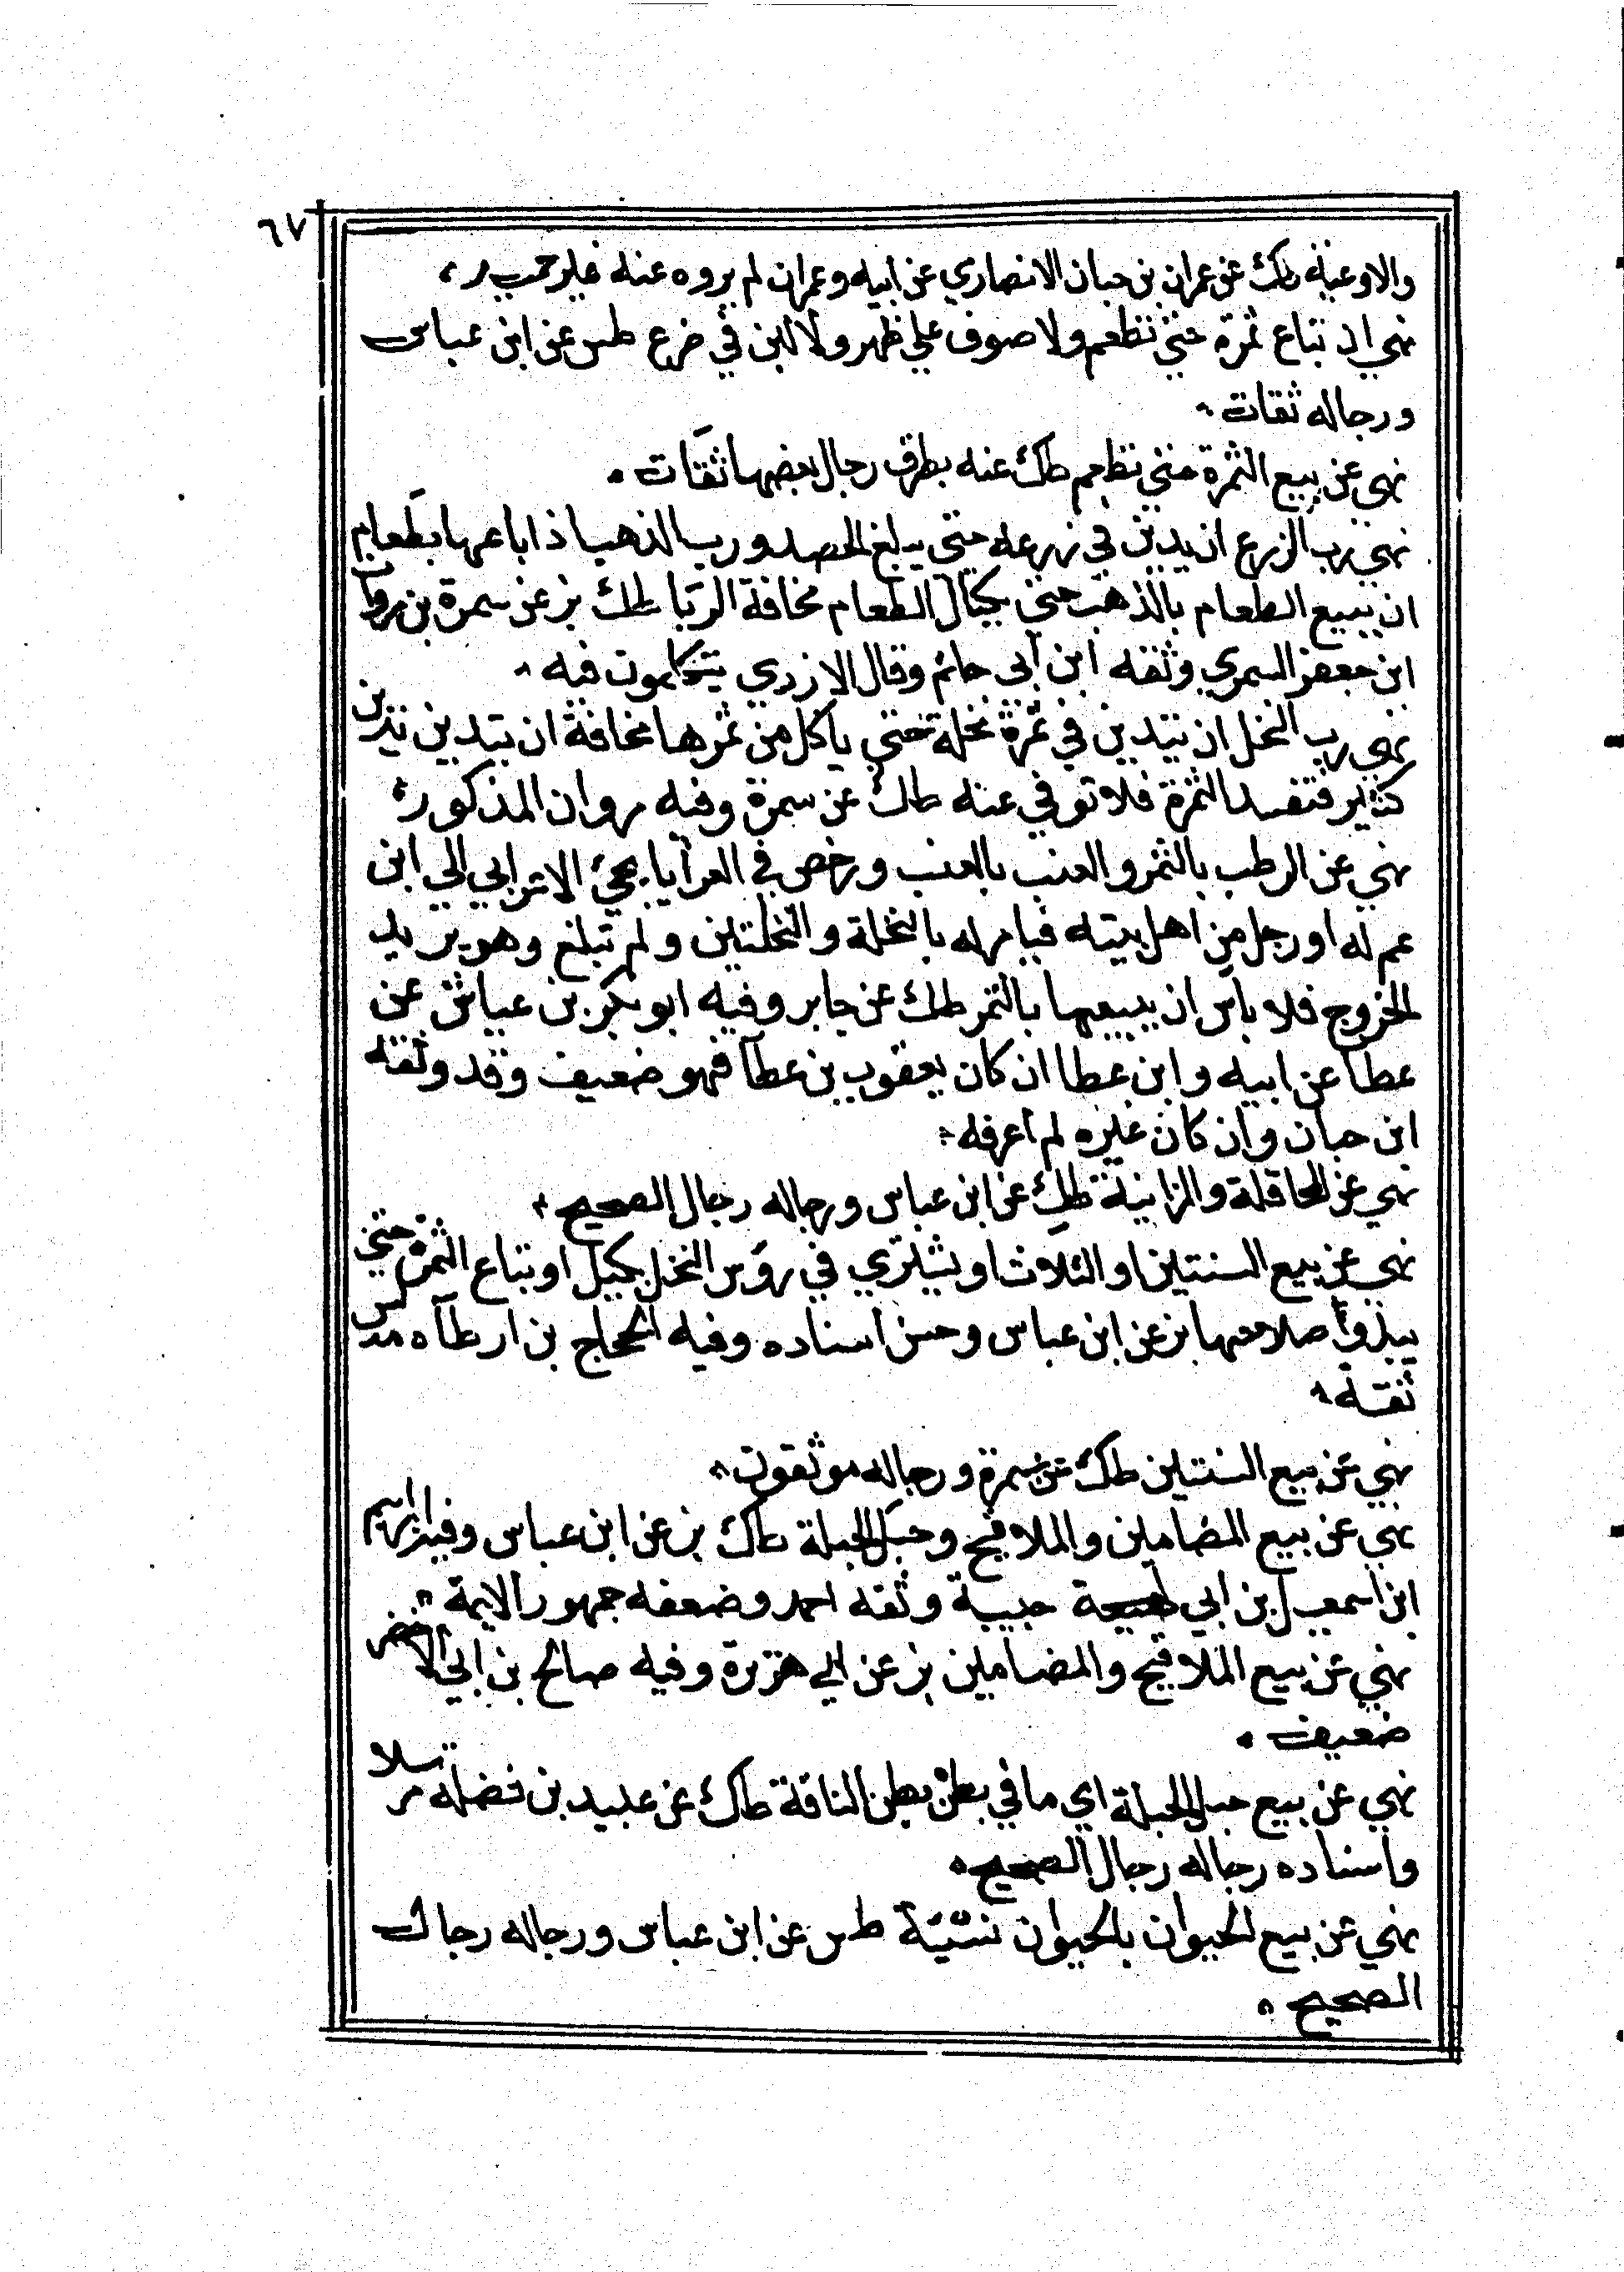 ٦٧
والاوعية طك عن عمران بن حبان الانصاري عن ابيه وعمران لم يروه عنه غير حميد
نهي ان تباع ثمرة حتي تطعم ولا صوف علي ظهر ولا لبن في ضرع طس عن ابن عباس
ورجاله ثقات
نهي عن بيع الثمرة حتي تطعم طك عنه بطرق رجال بعضها ثقات
نهي رب الزرع ان يدين في زرعه حتي يبلغ الحصد ورب الذهب اذا باعها بطعام
ان يبيع الطعام بالذهب حتي يكيال الطعام مخافة الربا طك بز عن سمرة بن مروان
ابن جعفر السمري وثقه ابن ابي حاتم وقال الازدي يتكلمون فيه
نهي رب النخل ان يتدين في ثمرة نخله حتي ياكل من ثمرها مخافة ان يتدين بدين
كثير فتفسد الثمرة فلا توفي عنه طك عن سمرة وفيه مروان المذكور
نهي عن الرطب بالثمر والعنب بالعنب ورخص في العرايا يجئ الاعرابي الي ابن
عم له او رجل من اهل بيته فيامر له بالنخلة والنخلتين ولم تبلغ وهو يريد
الخروج فلا باس ان يبيعها بالتمر طك عن جابر وفيه ابو بكر بن عياش عن
عطا عن ابيه وابن عطا ان كان يعقوب بن عطآ فهو ضعيف وقد وثقه
ابن حبان وان كان غيره لم اعرفه
نهي عن المحاقلة والمزابنة طك عن ابن عباس ورجاله رجال الصحيح
نهي عن بيع السنتين او الثلاث او يشتري في روس النخل بكيل او تباع الثمرة حتي
يبدوا صلاحها بز عن ابن عباس وحسن اسناده وفيه الحجاج بن ارطآه مدلس
ثقه
نهي عن بيع السنتين طك عن سمرة ورجاله موثقون
نهي عن بيع المضامين والملاقيح وحبل الحبلة طك بز عن ابن عباس وفيه ابراهيم
ابن اسمعيل بن ابي حبيبة وثقه احمد وضعفه جمهور الايمة
نهي عن بيع الملاقيح والمضامين بز عن ابي هريرة وفيه صالح بن ابي الاخضر
ضعيف
نهي عن بيع حبل الحبلة اي ما في بطن بطن الناقة طك عن عبيد بن فضله مرسلا
واسناده رجاله رجال الصحيح
نهي عن بيع الحيوان بالحيوان نسئية طس عن ابن عباس ورجاله رجال
الصحيح